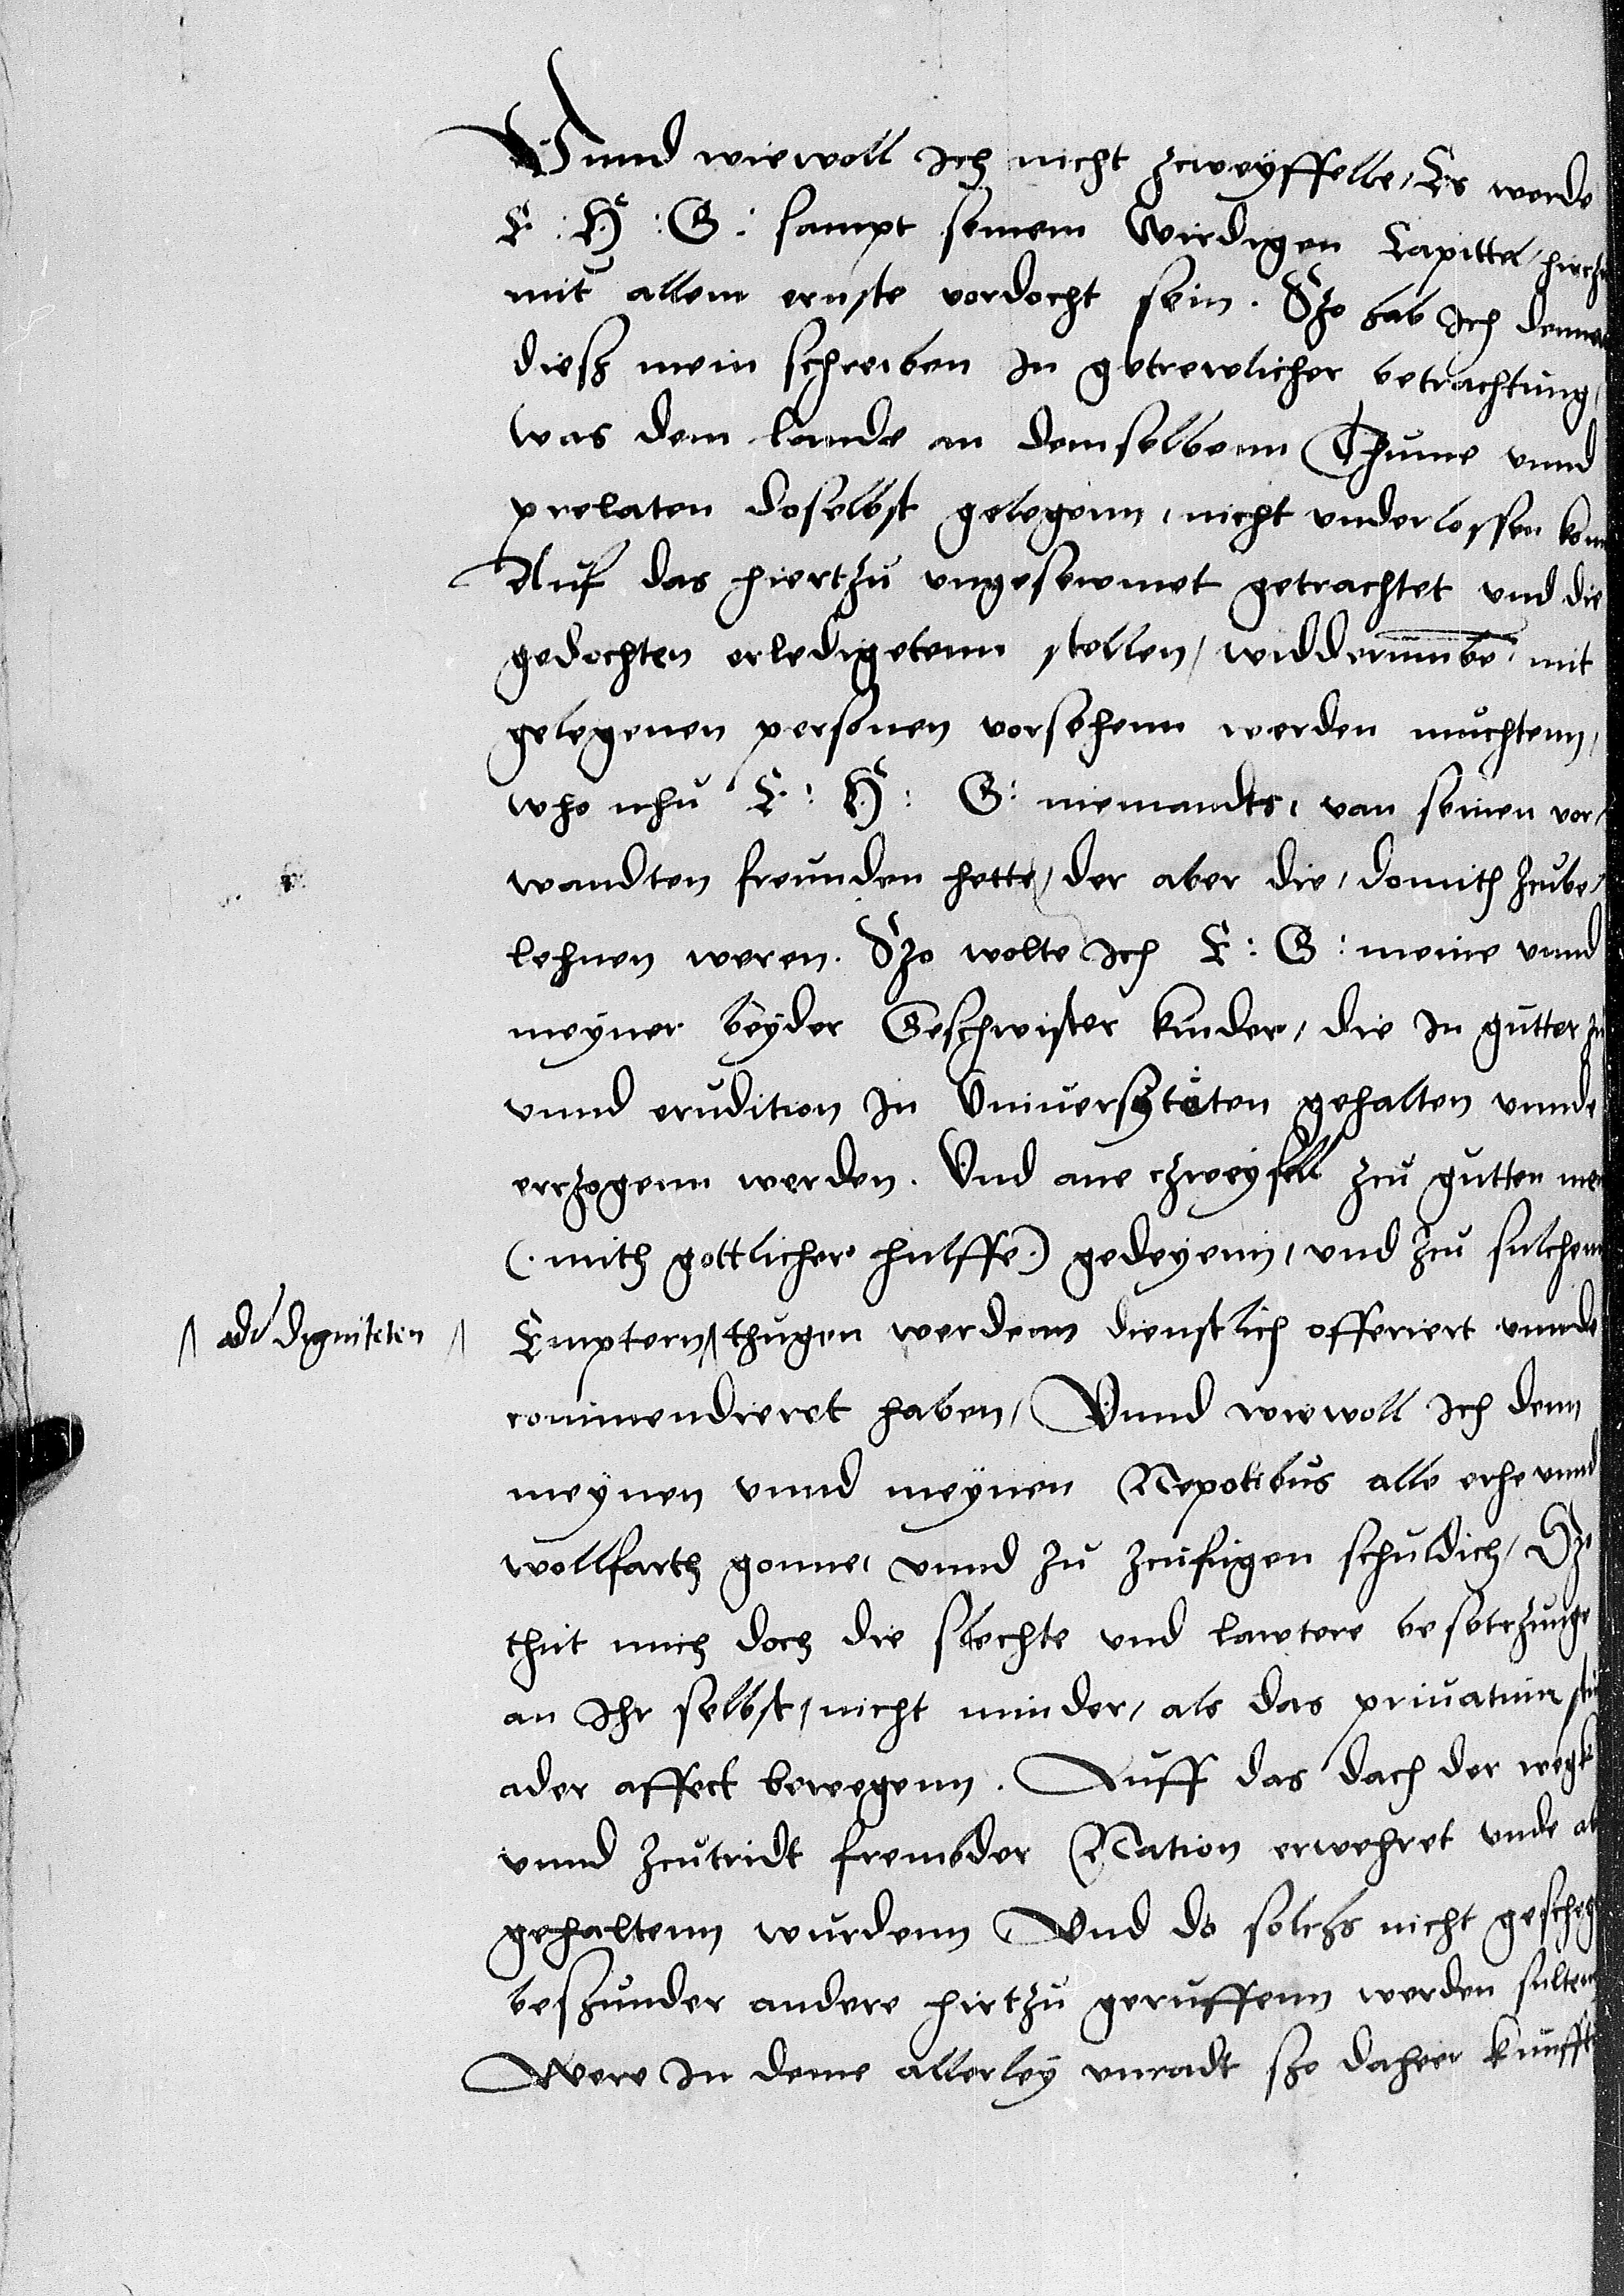 Vnnd wiewoll Ich nicht zcweyffelle, Es werde
E: H: G: sampt seinem Wirdigen Capittel, hirczu
mit allem ernste vordocht sein. Szo hab Ich denn
diesz mein schreiben In getrewlicher betrachtung,
was dem lande an demselbenn Thume vnnd
prelaten doselbst gelegenn, nicht vnderlossen konn
Auf das hiertzu vngesewmet getrachtet vnd die
gedochten erledigetenn stellen, widderumbe, mit
gelegenen personen vorsehenn werden muchtenn,
who nhu E: H: G: niemandts, van seinen vor/
wandten freunden hette, der aber die, domith zcube/
lehnen weren. Szo wolte Ich E: G: meine vnnd
meyner beyder Geschwister kinder, die In gutter zu
vnnd erudition In Vniuersiteten gehalten vnnde
erzogenn werden. Vnd ane zweyfell zcu gutten men
(. mith gottlicher hulffe.) gedeyenn, vnd zcu sulchenn
ader digniteten
Emptern, thugen werdenn dienstlich offeriert vnnde
commendieret haben, Vnnd wiewoll Ich denn
meynen vnnd meynen Nepotibus alle erhe vnnd
wollfarth gonne, vnnd zu zcufugen schuldich, Szo
thut mich doch die slechte vnd lawtere besetczunge
an Ihr selbst, nicht minder, als das priuatum
ader affect bewegenn. Auff das dach der wegk
vnnd zcutridt frembder Nation erwehret vnde ab
gehaltenn wurdenn Vnd do solchs nicht gescheg
beszunder andere hirtzu geruffenn werden sultenn
Were In deme allerley vnradt szo daheer kunfft